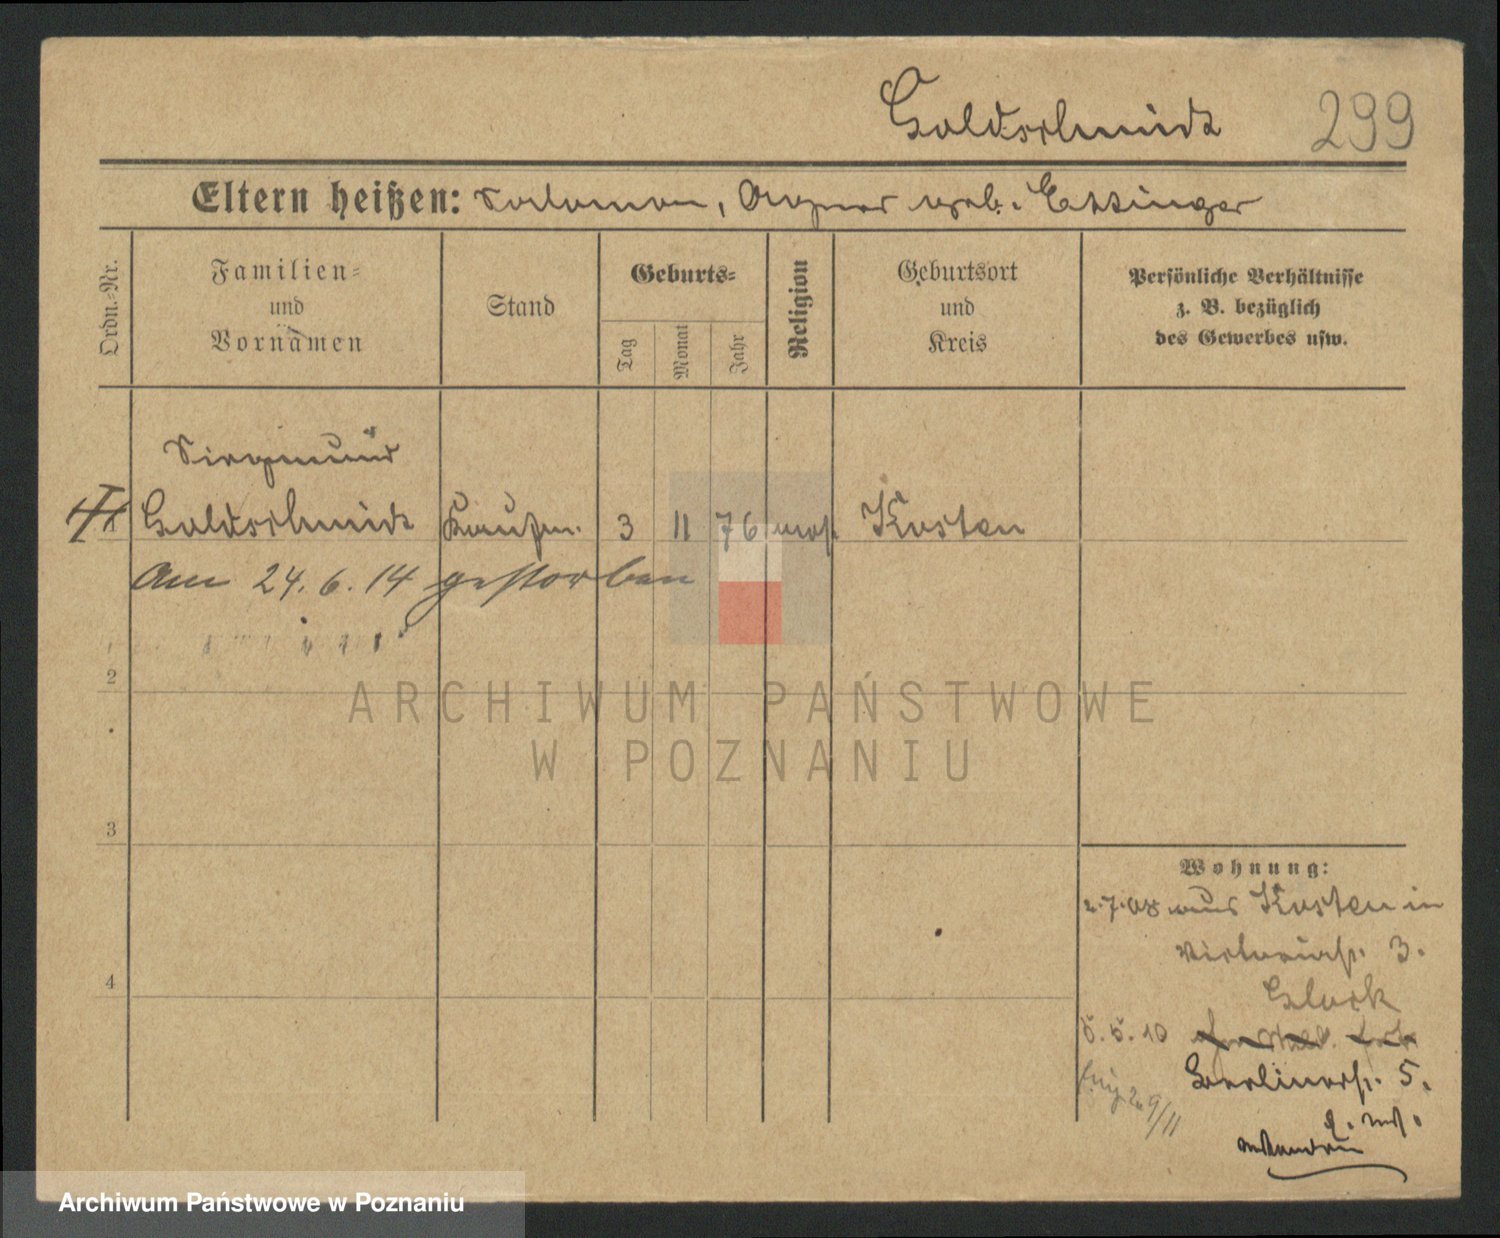 Goldschmidt 299
Eltern heißen: Salomon, Agnes geb. Ettinger
Ordn.-Nr.
Familien-
und
Vornamen
Stand
Geburts-
Tag
Monat
Jahr
Religion
Geburtsort
und
Kreis
Persönliche Verhältnisse
z. B. bezüglich
des Gewerbes usw.
Siegmund
Goldschmidt Kaufm. 3 11 76 mos. Kosten
Am 24.6.14 gestorben
2
ARCHIWUM PAŃSTWOWE
W POZNANIU
3
Wohnung:
2.7.08 aus Kosten in
Victoriastr. 3.
4
5.5.10
Berlinerstr. 5.
Archiwum Państwowe w Poznaniu